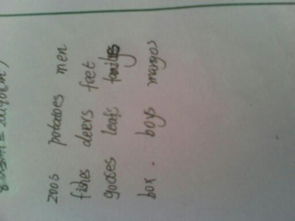 zoos potatoes men
fishes deers feet
gooses leafs
box . boys mangos